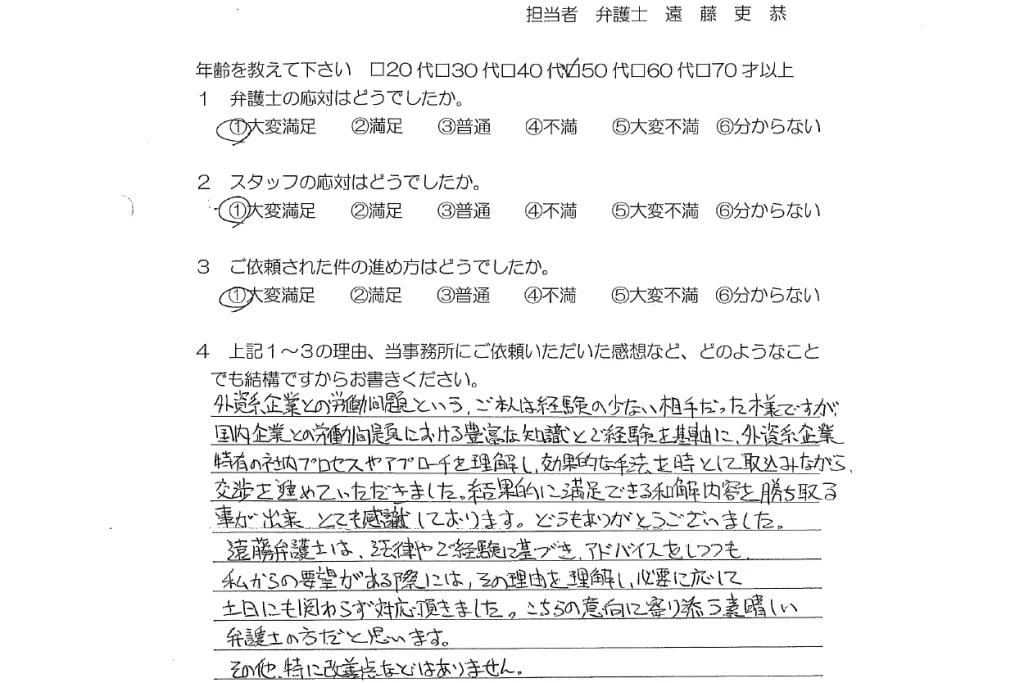 担当者 弁護士 遠藤吏恭
年齢を教えて下さい □20代□30代□40代☑50代□60代□70才以上
1 弁護士の応対はどうでしたか。
①大変満足 ②満足 ③普通 ④不満 ⑤大変不満 ⑥分からない
2 スタッフの応対はどうでしたか。
①大変満足 ②満足 ③普通 ④不満 ⑤大変不満 ⑥分からない
3 ご依頼された件の進め方はどうでしたか。
①大変満足 ②満足 ③普通 ④不満 ⑤大変不満 ⑥分からない
4 上記1~3の理由、当事務所にご依頼いただいた感想など、どのようなこと
でも結構ですからお書きください。
外資系企業との労働問題という、ご本人は経験の少ない相手だった様ですが、
国内企業との労働問題における豊富な知識とご経験を基軸に、外資系企業
特有の社内プロセスやアプローチを理解し、効果的な手法を時として取込みながら、
交渉を進めていただきました。結果的に満足できる和解内容を勝ち取る
事が出来、とても感謝しております。どうもありがとうございました。
遠藤弁護士は、法律やご経験に基づき、アドバイスをしつつも、
私からの要望がある際には、その理由を理解し、必要に応じて
土日にも関わらず対応頂きました。こちらの意向に寄り添う素晴しい
弁護士の方だと思います。
その他、特に改善点などはありません。